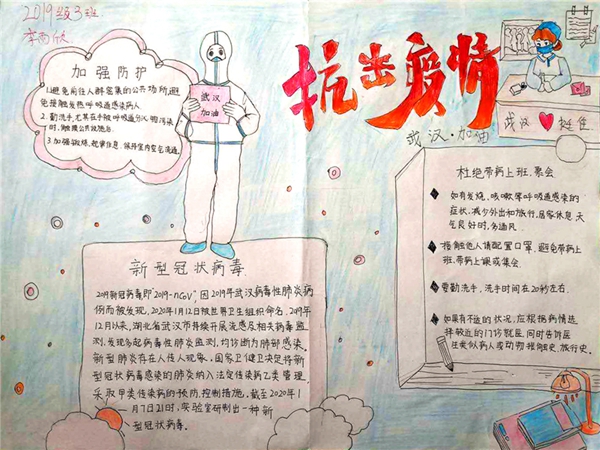 2019级3班
加强防护
1.避免前往人群密集的公共场所,避
免接触发热呼吸道感染病人
2.勤洗手,尤其在手被呼吸道分泌物污染
时,触摸公共设施后.
3.加强锻炼,规律作息,保持室内空气流通.
武汉
加油
抗击疫情
武汉·加油
武汉 挺住
杜绝带病上班、聚会
如有发烧、咳嗽等呼吸道感染的
症状,减少外出和旅行,居家休息,天
气良好时,多通风
接触他人请配置口罩,避免带病上
班、带病上课或集会.
要勤洗手,洗手时间在20秒左右.
如果有不适的状况,应根据病情选
择就近的门诊就医,同时告诉医
生类似病人或动物接触史、旅行史.
新型冠状病毒
2019新冠病毒即"2019-nCoV",因2019年武汉病毒性肺炎病
例而被发现,2020年1月12日被世界卫生组织命名,2019年
12月以来,湖北省武汉市持续开展流感及相关病毒监
测,发现多起病毒性肺炎监测,均诊断为肺部感染.
新型肺炎存在人传人现象,国家卫健卫决定将新
型冠状病毒感染的肺炎纳入法定传染病乙类管理,
采取甲类传染病的预防、控制措施。截至2020年1
月7日21时,实验室研制出一种新
型冠状病毒.